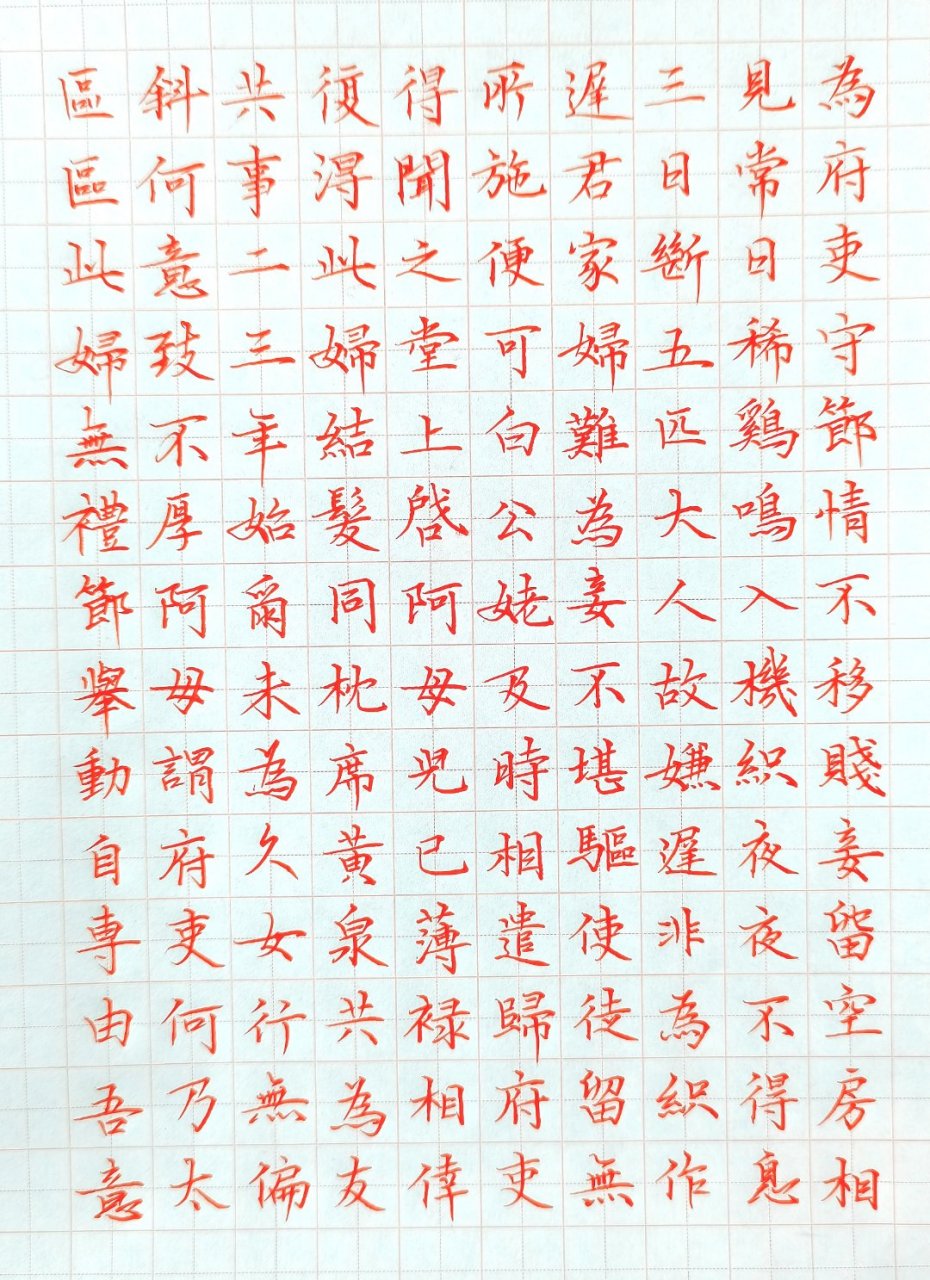 為府吏守節情不移賤妾留空房相
見常日稀鷄鳴入機織夜夜不得息
三日斷五匹大人故嫌遲非為織作
遲君家婦難為妾不堪驅使徒留無
所施便可白公姥及時相遣歸府吏
得聞之堂上啓阿母兒已薄祿相倖
復得此婦結髮同枕席黃泉共為友
共事二三年始爾未為久女行無偏
斜何意致不厚阿母謂府吏何乃太
區區此婦無禮節舉動自專由吾意